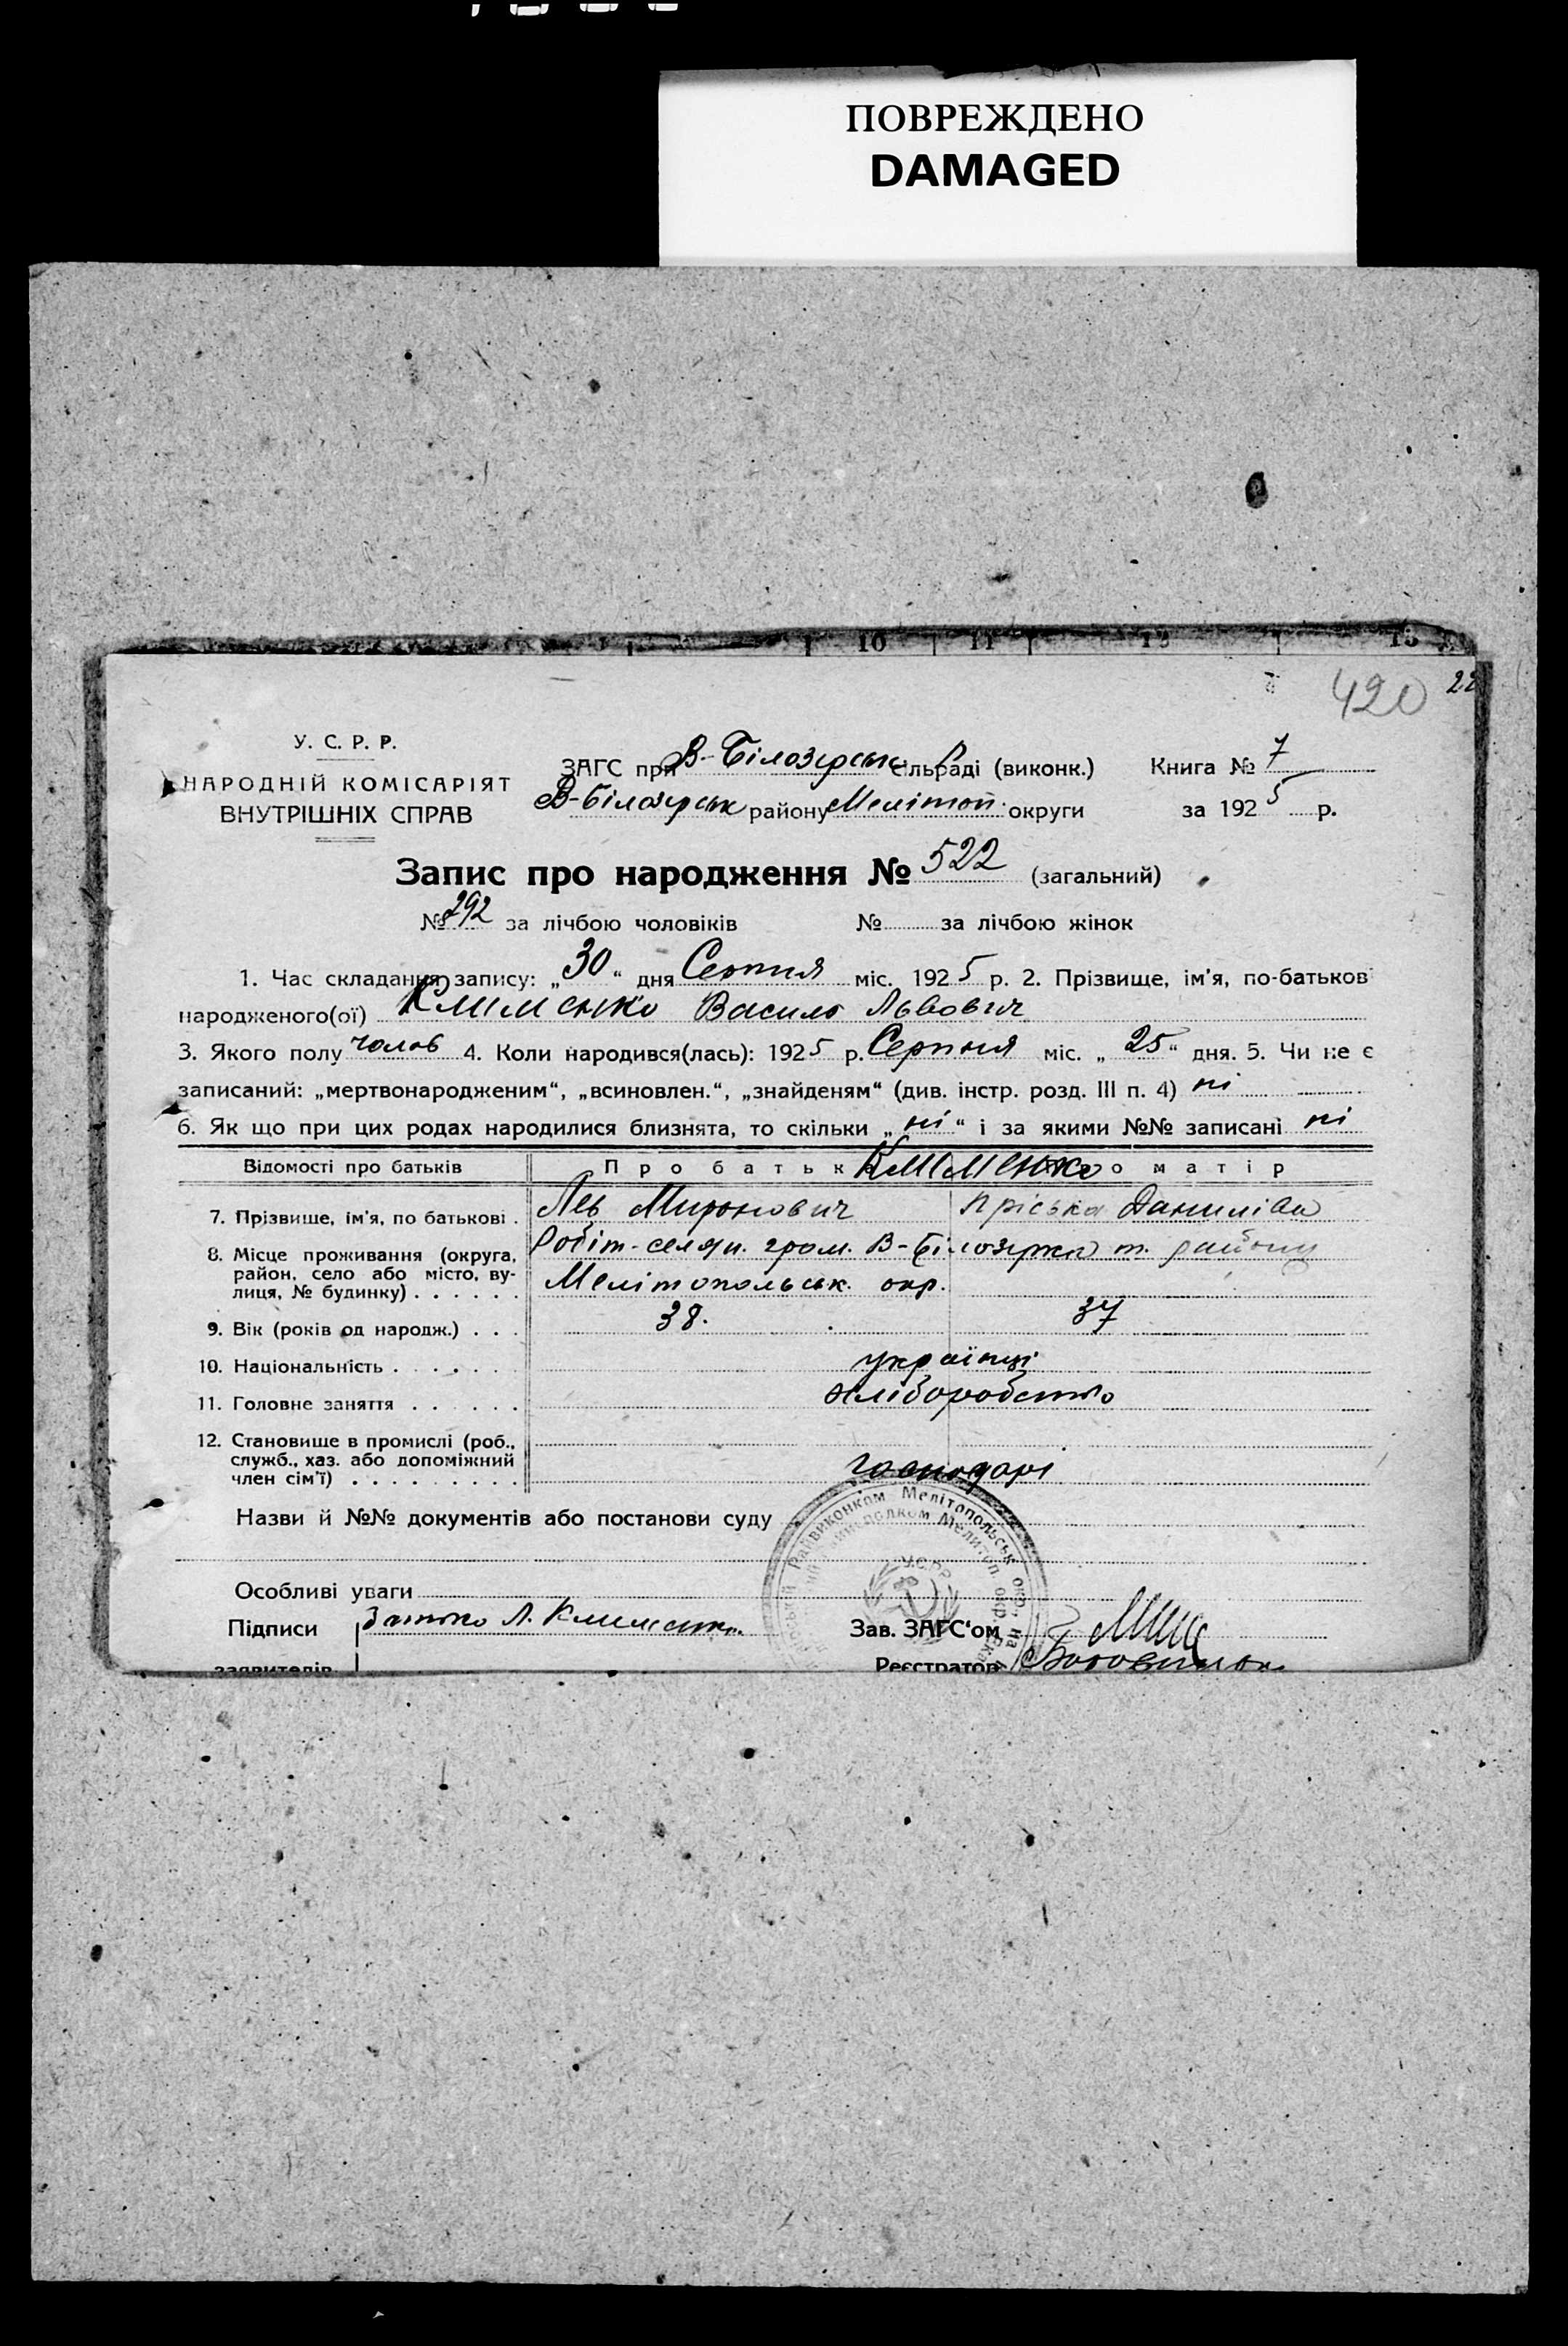 ПОВРЕЖДЕНО
DAMAGED
10 11 12 13
420 22
У. С. Р. Р.
НАРОДНІЙ КОМІСАРІЯТ
ВНУТРІШНІХ СПРАВ
ЗАГС при В-Білозерськ. сільраді (виконк.) Книга № 7
В-Білозерськ району Мелітоп. округи за 1925 р.
Запис про народження № 522 (загальний)
№ 292 за лічбою чоловіків № за лічбою жінок
1. Час складання запису: „30“ дня Серпня міс. 1925 р. 2. Прізвище, ім'я, по-батьков
народженого(ої) Клименко Василь Львович
3. Якого полу чолов 4. Коли народився(лась): 1925 р. Серпня міс. „25“ дня. 5. Чи не є
записаний: „мертвонародженим“, „всиновлен.“, „знайденям“ (див. інстр. розд. III п. 4) ні
6. Як що при цих родах народилися близнята, то скільки „ні“ і за якими №№ записані ні
Відомості про батьків Про батька Клименко Про матір
7. Прізвище, ім'я, по батькові . Лев Миронович Пріська Данилівна
8. Місце проживання (округа, Робіт-селян. гром. В-Білозерка т. району
район, село або місто, ву-
лиця, № будинку) . . . . . . Мелітопольськ. окр.
9. Вік (років од народж.) . . . 38. 37
10. Національність . . . . . . українці
11. Головне заняття . . . . . . хліборобство
12. Становище в промислі (роб.,
служб., хаз. або допоміжний
член сім'ї) . . . . . . . . . господарі
Назви й №№ документів або постанови суду
Райвиконком Мелітопольськ окр. на
У.С.Р.Р.
Особливі уваги
Підписи Батько Л. Клименко. Зав. ЗАГС'ом
заявителів Реєстратор